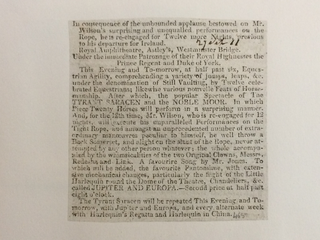 In consequence of the unbounded applause bestowed on Mr.
Wilson's surprising and unequalled performances on the
Rope, he is re-engaged for Twelve more Nights, previous
to his departure for Ireland.
Royal Amphitheatre, Astley's, Westminster Bridge.
Under the immediate Patronage of their Royal Highnesses the
Prince Regent and Duke of York.
This Evening and To-morrow, at half past six, Eques-
trian Agility, comprehending a variety of jumps, leaps, &c.
under the denomination of Still Vaulting, by Twelve cele-
brated Equestrians; likewise various novel Feats of Horse-
manship. After which, the popular Spectacle of The
TYRANT SARACEN and the NOBLE MOOR. In which
Piece Twenty Horses will perform in a surprising manner.
And, for the 12th time, Mr. Wilson, who is re-engaged for 12
nights, will perform his unparalleled Performances on the
Tight Rope, and amongst an unprecedented number of extra-
ordinary manœuvres peculiar to himself, he will throw a
Back Somerset, and alight on the slant of the Rope, never at-
tempted by any other person whatever; the whole accompa-
nied by the whimsicalities of the two Original Clowns, Messrs.
and A favourite Song by Mr. Jones. To
which will be added, the favourite Pantomime, with exten-
sive mechanical changes, particularly the flight of the Little
Harlequin round the Dome of the Theatre, Chandeliers, &c.
called JUPITER AND EUROPA.—Second price at half past
eight o'clock.
The Tyrant Saracen will be repeated This Evening and To-
morrow, with Jupiter and Europa, and every alternate week
with Harlequin's Regatta and Harlequin in China.